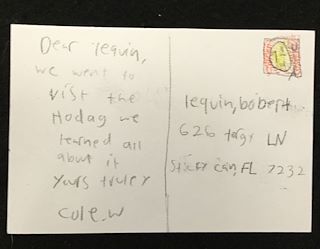 Dear lequin,
we went to
vist the
Hodag we
learned all
about it
yours truley
Cole.w
lequin, bobert
626 targt LN
Sticky can, FL 7232